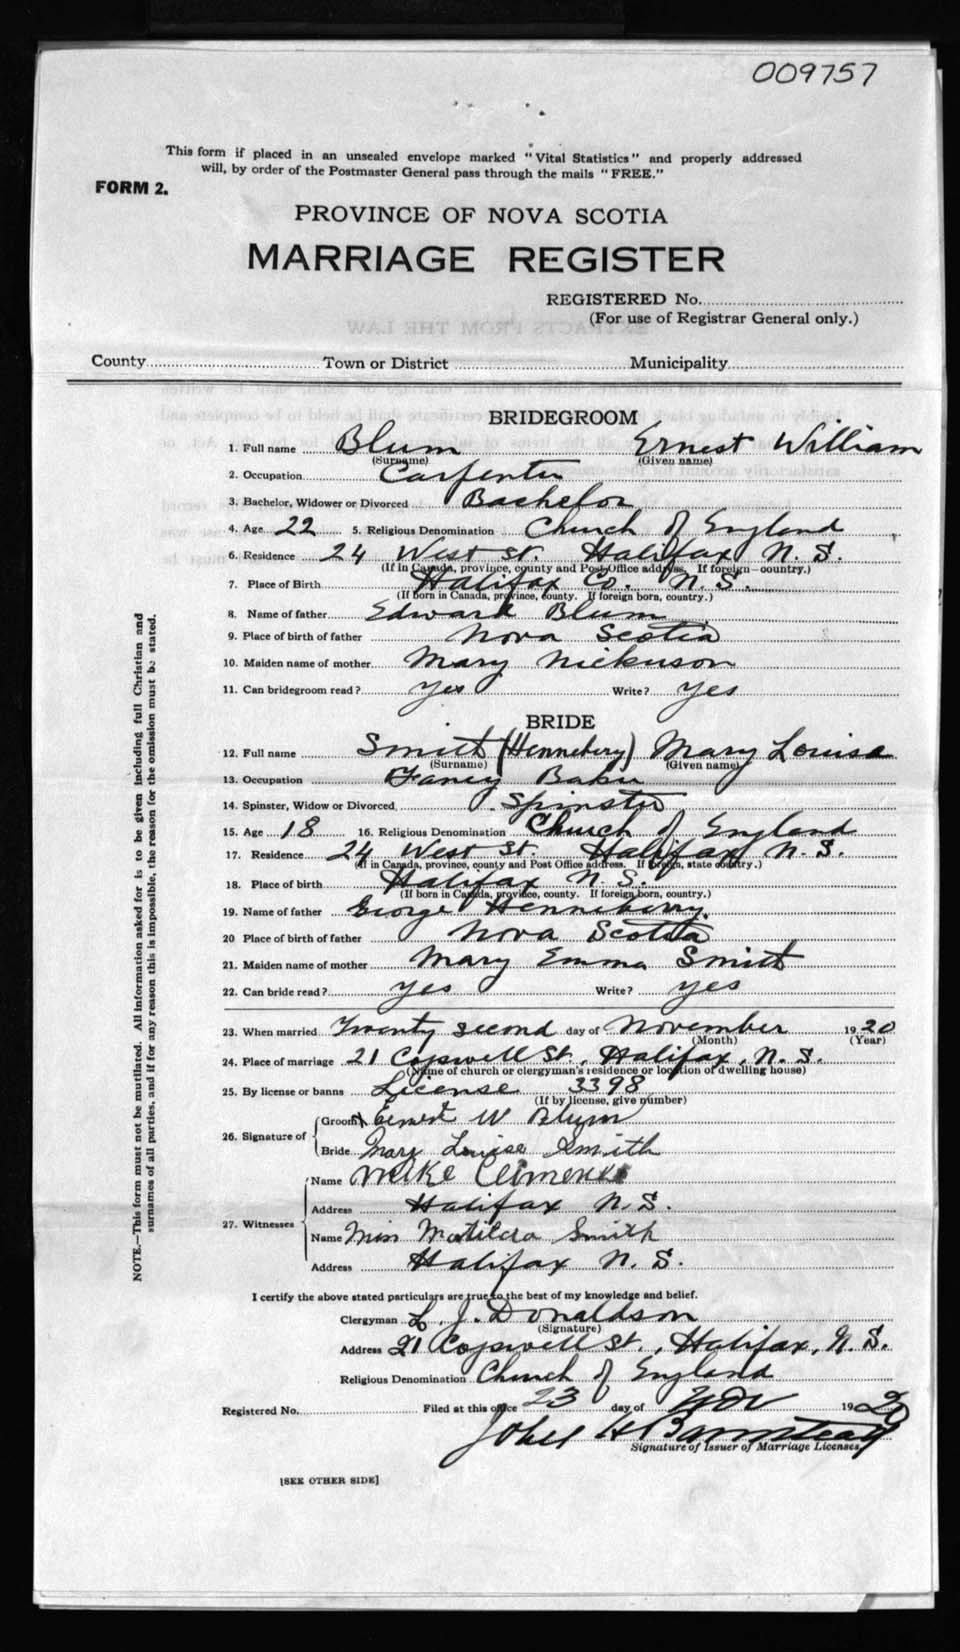 009757
This form if placed in an unsealed envelope marked "Vital Statistics" and properly addressed
will, by order of the Postmaster General pass through the mails "FREE."
FORM 2.
PROVINCE OF NOVA SCOTIA
MARRIAGE REGISTER
REGISTERED No.
(For use of Registrar General only.)
County Town or District Municipality
BRIDEGROOM
1. Full name Blum Ernest William
(Surname) (Given name)
2. Occupation Carpenter
3. Bachelor, Widower or Divorced Bachelor
4. Age 22 5. Religious Denomination Church of England
6. Residence 24 West St. Halifax N. S.
(If in Canada, province, county and Post Office address. If foreign—country.)
7. Place of Birth Halifax Co. N. S.
(If born in Canada, province, county. If foreign born, country.)
8. Name of father Edward Blum
9. Place of birth of father Nova Scotia
10. Maiden name of mother Mary Nickuson
11. Can bridegroom read? Yes Write? Yes
BRIDE
12. Full name Smith (Henneberry) Mary Louisa
(Surname) (Given name)
13. Occupation Fancy Baker
14. Spinster, Widow or Divorced Spinster
15. Age 18 16. Religious Denomination Church of England
17. Residence 24 West St. Halifax N. S.
(If in Canada, province, county and Post Office address. If foreign, state country.)
18. Place of birth Halifax N. S.
(If born in Canada, province, county. If foreign born, country.)
19. Name of father George Henneberry.
20 Place of birth of father Nova Scotia
21. Maiden name of mother Mary Emma Smith
22. Can bride read? yes Write? yes
23. When married Twenty second day of November 1920
(Month) (Year)
24. Place of marriage 21 Cogswell St., Halifax, N. S.
(Name of church or clergyman's residence or location of dwelling house)
25. By license or banns License 3398
(If by license, give number)
26. Signature of Groom Ernest W Blum
Bride Mary Louise Smith
27. Witnesses Name Mike Clements
Address Halifax N. S.
Name Miss Matilda Smith
Address Halifax N. S.
I certify the above stated particulars are true to the best of my knowledge and belief.
Clergyman L. J. Donaldson
(Signature)
Address 21 Cogswell St., Halifax, N. S.
Religious Denomination Church of England
Registered No. Filed at this office 23 day of Nov 1920
John H Barnstead
Signature of Issuer of Marriage Licenses
[SEE OTHER SIDE]
NOTE.—This form must not be mutilated. All information asked for is to be given including full Christian and
surnames of all parties, and if for any reason this is impossible, the reason for the emission must be stated.